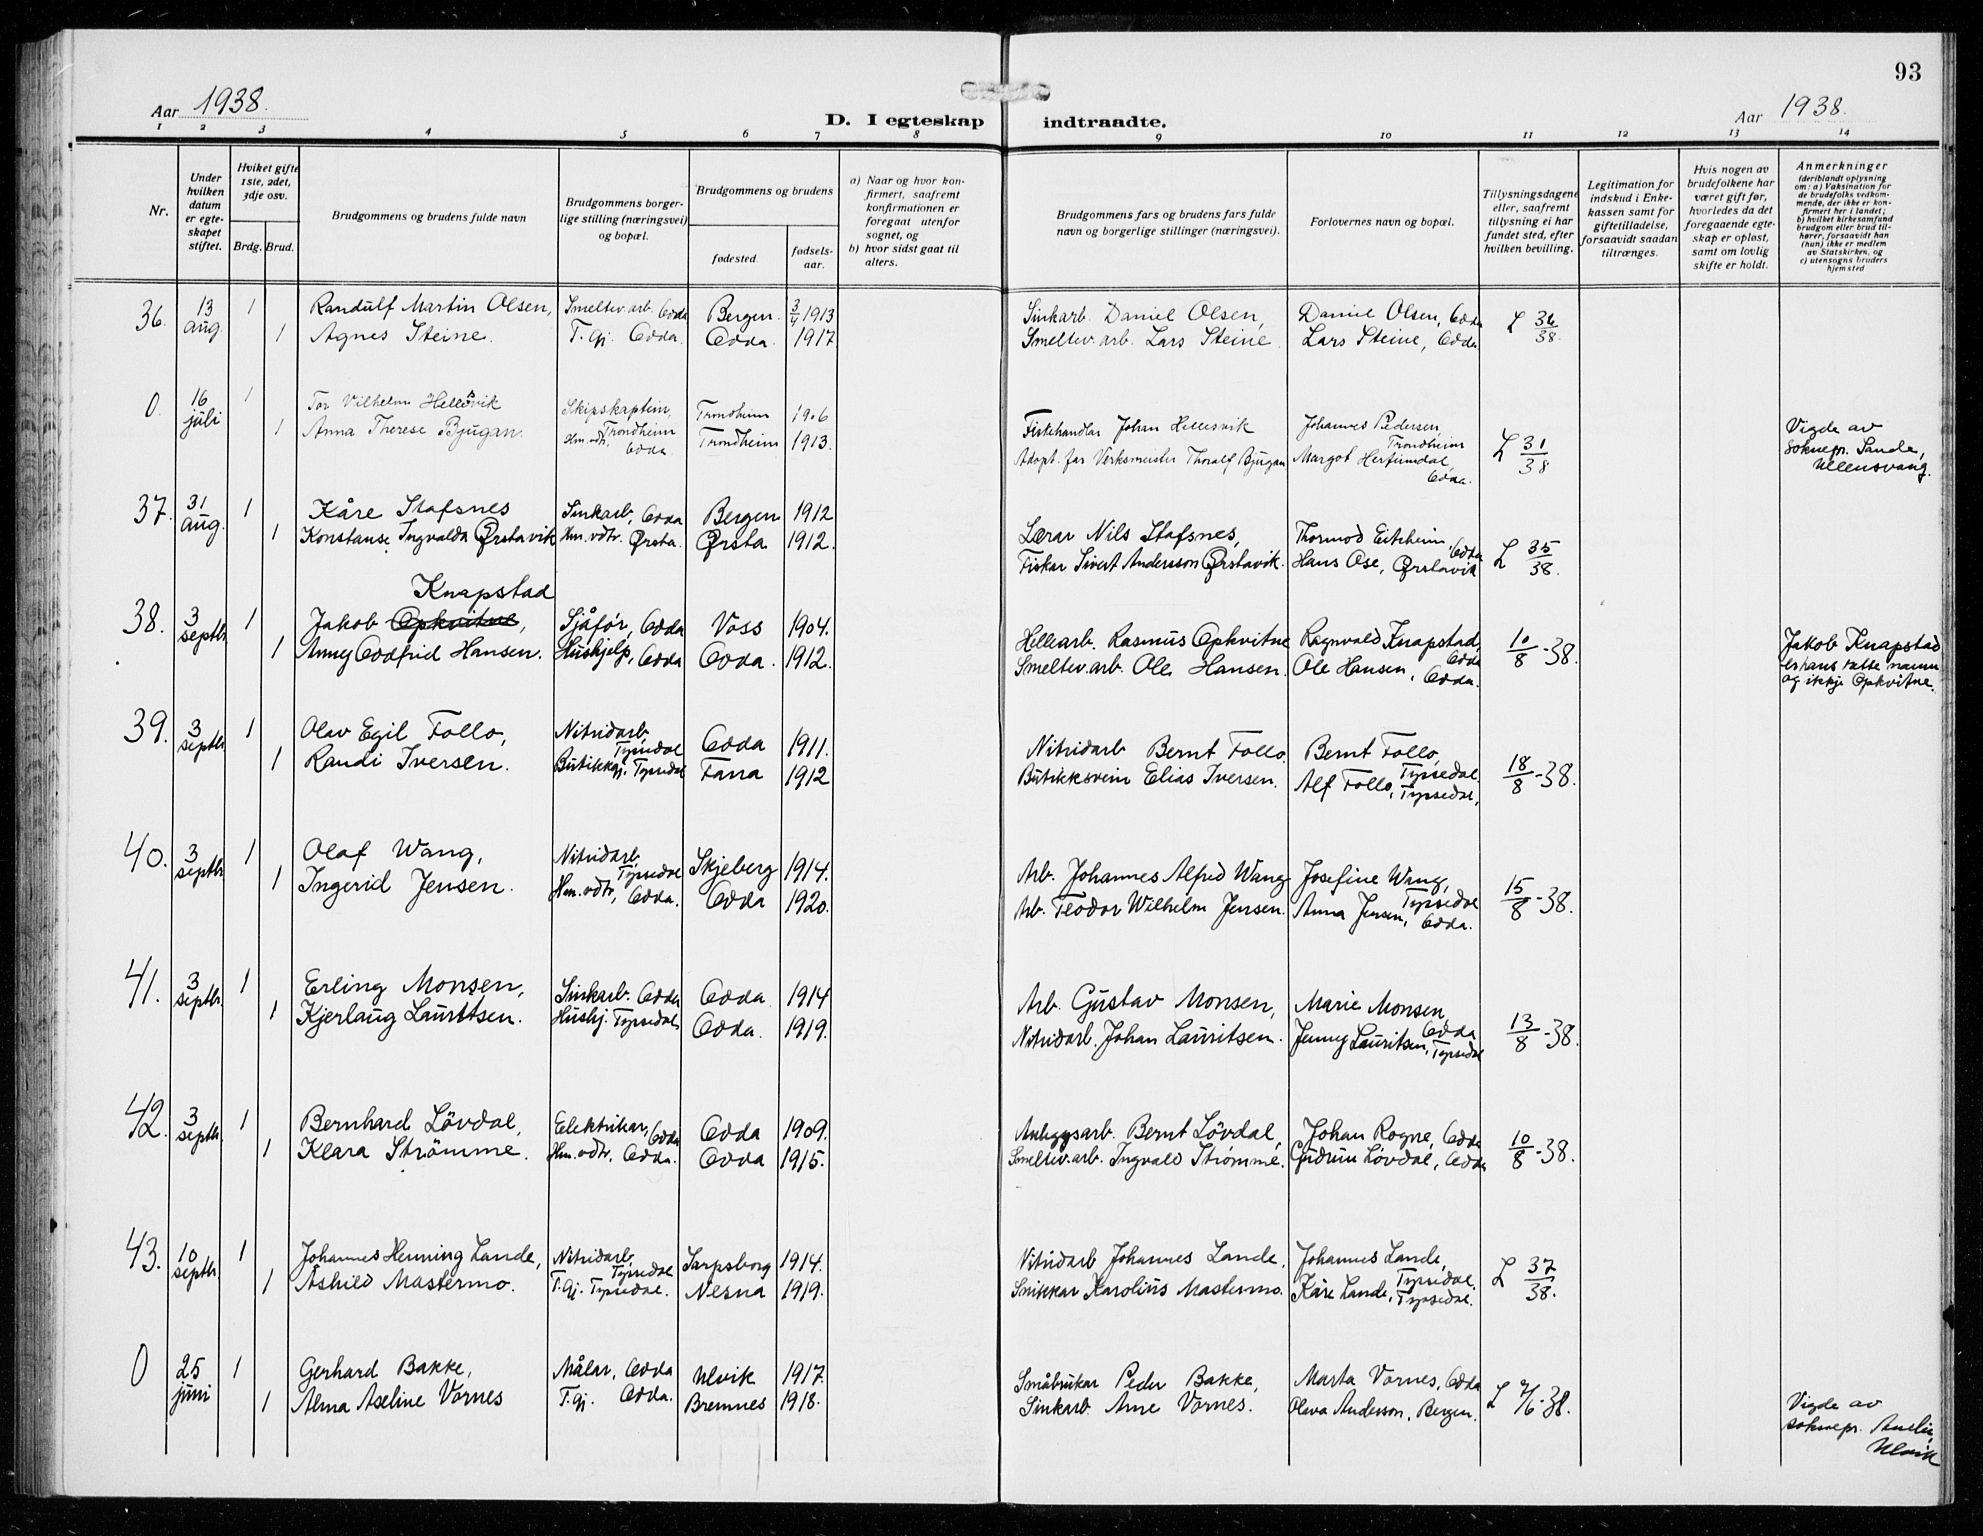 93
Aar 1938.
D. I egteskap indtraadte.
Aar 1938.
1 2 3 4 5 6 7 8 9 10 11 12 13 14
Nr.
Under hvilken datum er egteskapet stiftet.
Hviket gifte 1ste, 2det, 3dje osv.
Brdg. Brud.
Brudgommens og brudens fulde navn
Brudgommens borgerlige stilling (næringsvei) og bopæl.
Brudgommens og brudens
fødested.
fødselsaar.
a) Naar og hvor konfirmert, saafremt konfirmationen er foregaat utenfor sognet, og
b) hvor sidst gaat til alters.
Brudgommens fars og brudens fars fulde navn og borgerlige stillinger (næringsvei).
Forlovernes navn og bopæl.
Tillysningsdagene eller, saafremt tillysning ei har fundet sted, efter hvilken bevilling.
Legitimation for indskud i Enkekassen samt for giftetilladelse, forsaavidt saadan tiltrænges.
Hvis nogen av brudefolkene har været gift før, hvorledes da det foregaaende egteskap er opløst, samt om lovlig skifte er holdt.
Anmerkninger (deriblandt oplysning om: a) Vaksination for de brudefolks vedkommende, der ikke er konfirmert her i landet; b) hvilket kirkesamfund brudgom eller brud tilhører, forsaavidt han (hun) ikke er medlem av Statskirken, og c) utensogns bruders hjemsted
36. 13 aug. 1 Randulf Martin Olsen, Smeltev.arb. Odda Bergen 3/4 1913 Sinkarb. Daniel Olsen, Daniel Olsen, Odda L 36/38.
1 Agnes Steine. T.gj. Odda. Odda. 1917 Smeltev.arb. Lars Steine. Lars Steine, Odda.
0. 16 juli 1 Tor Vilhelm Hellesvik Skipskaptein, Trondheim Trondheim 1906 Fiskehandlar Johan Hellesvik Johannes Pedersen, Trondheim L 31/38 Vigde av
1 Anna Therese Bjugan. Hm.vdtr, Odda. Trondheim 1913. Adopt. far Verksmeister Thoralf Bjugan Margot Odda. soknepr. Sande, Ullensvang.
37. 31 aug. 1 Kåre Stafsnes Sinkarb, Odda Bergen 1912 Lærar Nils Stafsnes, Thormod Eitrheim Odda L 35/38.
1 Konstanse Ingvalda Ørstavik Hm.vdtr. Ørsta. Ørsta 1912. Fiskar Sivert Andersson Ørstavik. Hans Ose, Ørstavik
Knapstad
38. 3 septbr. 1 Jakob Opkvitne, Sjåför, Odda Voss 1904. Hellearb. Rasmus Opkvitne Ragnvald Knapstad, Odda 10/8-38. Jakob Knapstad
1 Anny Oddfrid Hansen. Hushjelp, Odda Odda. 1912. Smeltev.arb. Ole Hansen. Ole Hansen, Odda. er hans rette namn og ikkje Opkvitne.
39. 3 septbr. 1 Olav Egil Follo, Nitridarb, Tyssedal Odda 1911. Nitridarb Bernt Follo. Bernt Follo, Tyssedal 18/8-38.
1 Randi Iversen. Butikkgj. Tyssedal Fana 1912 Butikksvein Elias Iversen. Alf Follo, Tyssedal.
40. 3 septbr 1 Olaf Wang, Nitridarb, Tyssedal Skjeberg 1914. Arb. Johannes Alfred Wang Josefine Wang, Tyssedal 15/8-38.
1 Ingerid Jensen. Hm.vdtr, Odda. Odda 1920. Arb. Teodor Wilhelm Jensen. Anna Jensen, Odda.
41. 3 septbr. 1 Erling Monsen, Sinkarb. Odda Odda 1914 Arb. Gustav Monsen, Marie Monsen, Odda 13/8-38.
1 Kjerlaug Lauritsen. Hushj. Tyssedal Odda. 1919. Nitridarb. Johan Lauritsen. Jenny Lauritsen, Tyssedal
42. 3 septbr. 1 Bernhard Lövdal, Elektrikar, Odda Odda 1909. Anleggsarb. Bernt Lövdal, Johan Rogne, Odda 10/8-38.
1 Klara Strömme. Hm.vdtr, Odda. Odda 1915. Smeltev.arb. Ingvald Strömme. Gudrun Lövdal, Odda
43. 10 septbr. 1 Johannes Henning Lande, Nitridarb, Tyssedal Sarpsborg 1914. Nitridarb Johannes Lande, Johannes Lande, Tyssedal. L 37/38.
1 Åshild Mastermo. T.gj. Tyssedal. Nesna 1919. Snikkar Karolius Mastermo. Kåre Lande, Tyssedal.
0 25 juni 1 Gerhard Bakke, Målar, Odda Ulvik 1917 Småbrukar Peder Bakke, Marta Vornes, Odda L 7/6-38. Vigde av
1 Alma Aseline Vornes T.gj. Odda. Bremnes 1918. Sinkarb. Arne Vornes. Olava Anderson, Bergen. soknepr. Ulvik